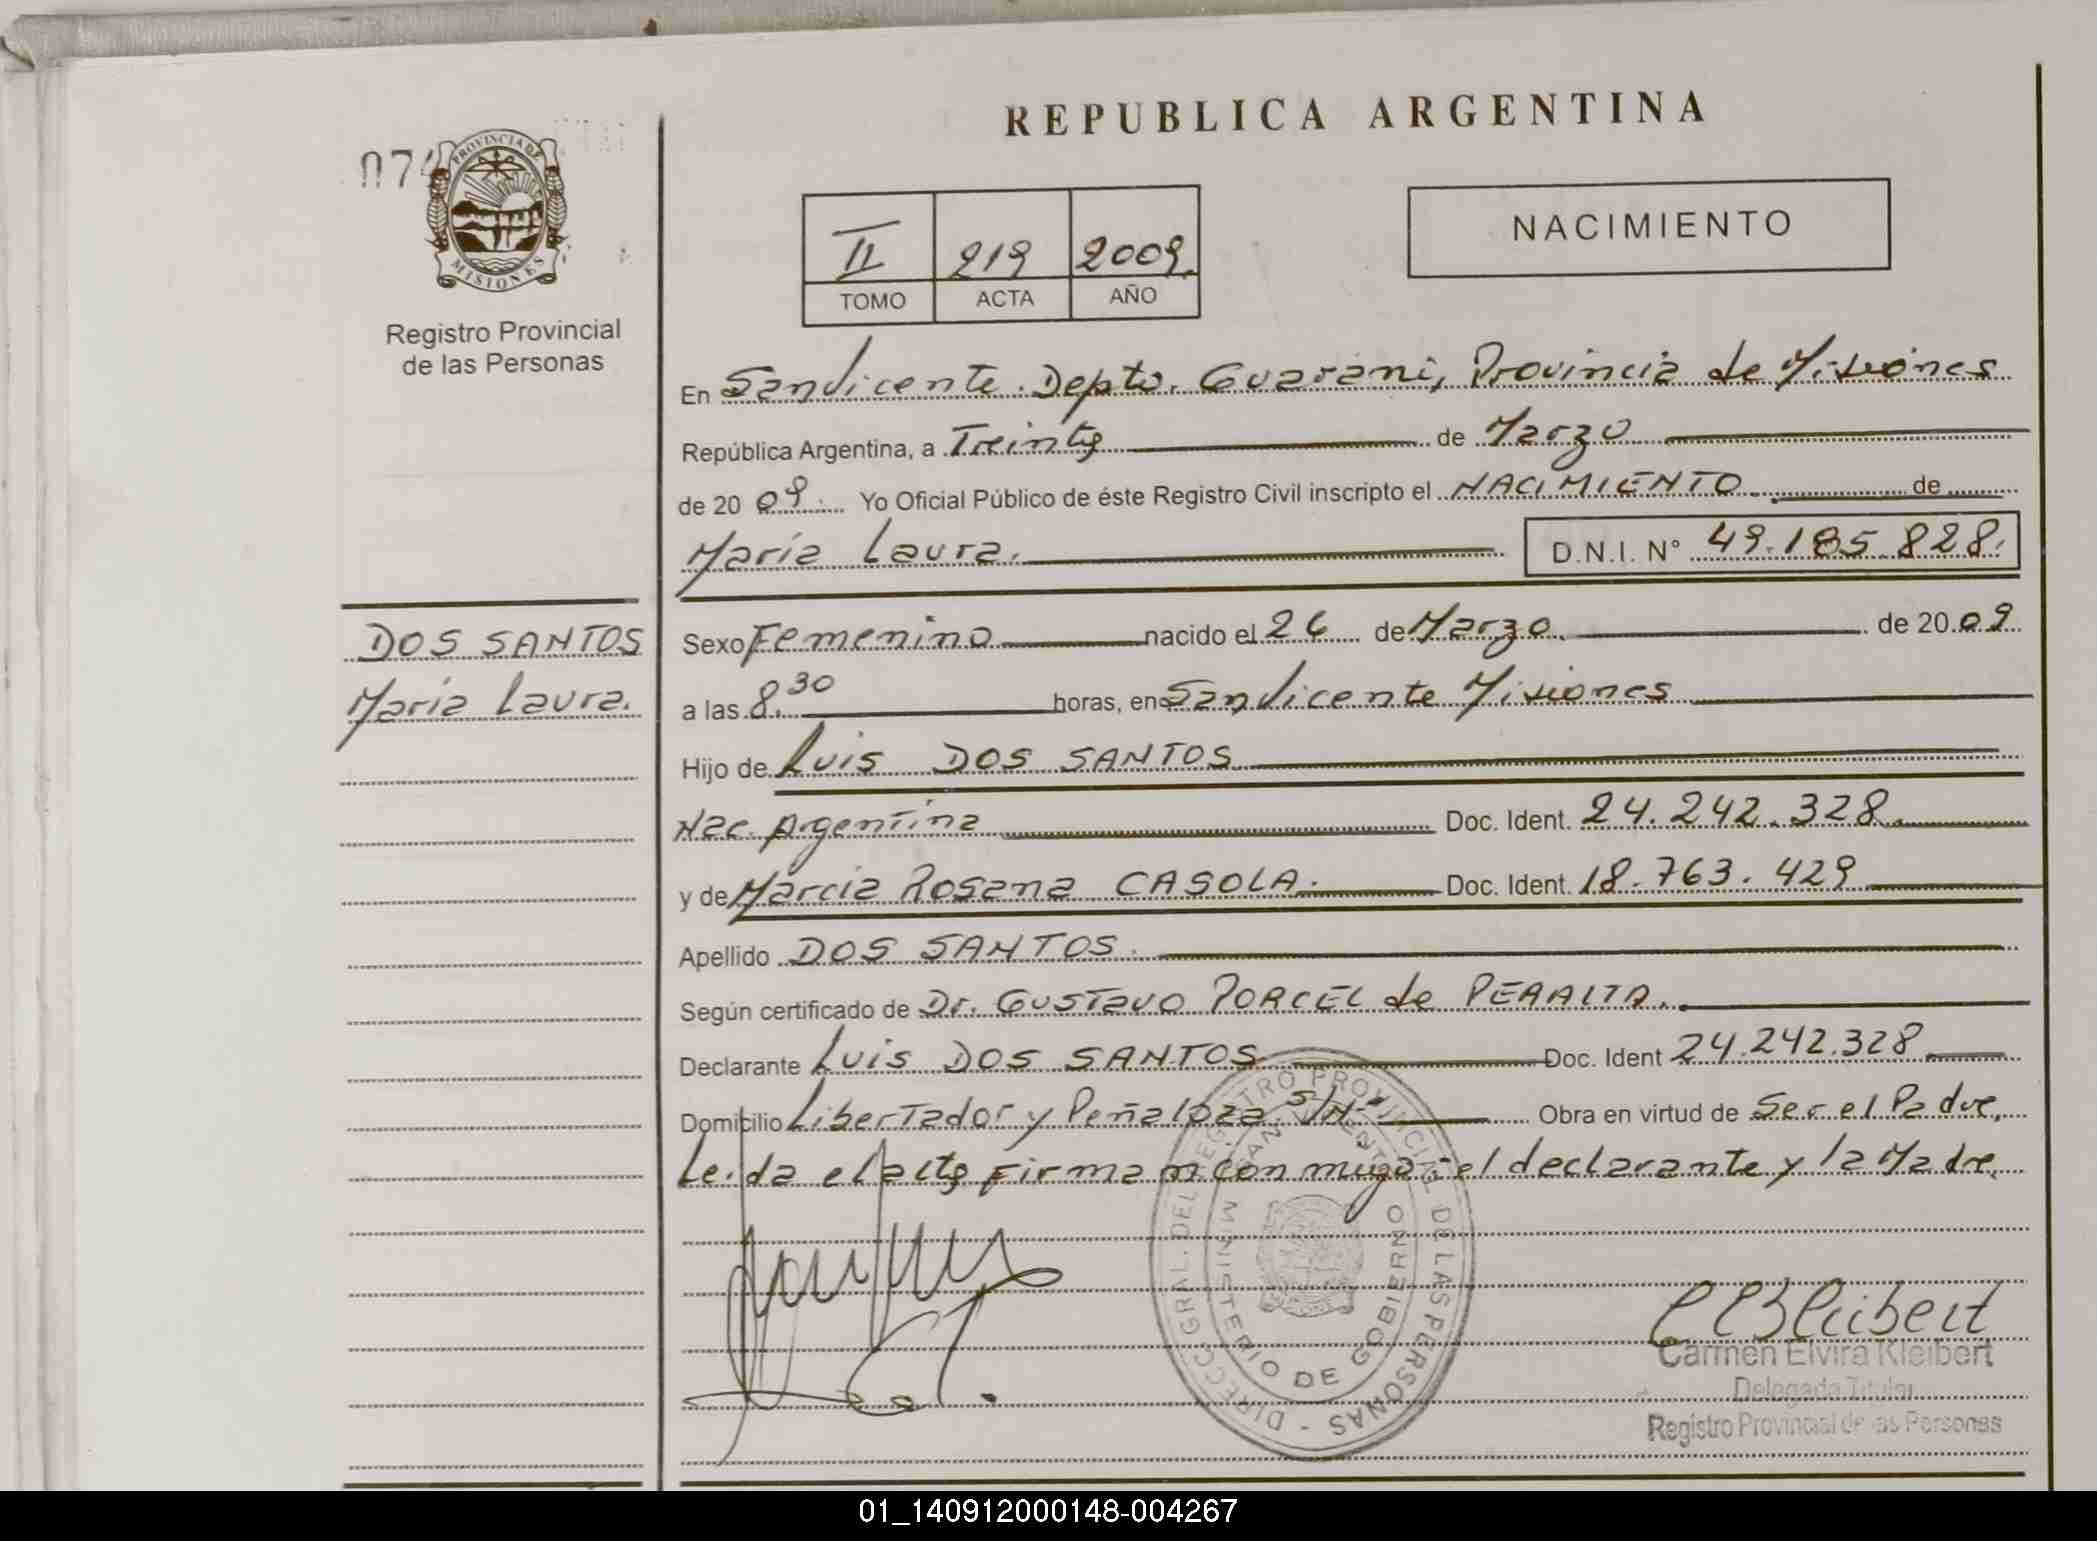 REPUBLICA ARGENTINA
074
PROVINCIA DE
MISIONES
Registro Provincial
de las Personas
II 219 2009.
TOMO ACTA AÑO
NACIMIENTO
En San Vicente. Depto. Guarani, Provincia de Misiones
República Argentina, a Treinta de Marzo
de 20 09. Yo Oficial Público de éste Registro Civil inscripto el NACIMIENTO de
María Laura. D.N.I. N° 49.185.828.
DOS SANTOS
María Laura.
Sexo Femenino nacido el 26 de Marzo. de 20 09
a las 8.30 horas, en San Vicente Misiones
Hijo de Luis DOS SANTOS
Nac. Argentina Doc. Ident. 24.242.328.
y de Marcia Rosana CASOLA. Doc. Ident. 18.763.429
Apellido DOS SANTOS.
Según certificado de Dr. Gustavo PORCEL de PERALTA.
Declarante Luis DOS SANTOS Doc. Ident 24.242.328
Domicilio Libertador y Peñaloza S/N° Obra en virtud de Ser el Padre,
Leida el acta firman conmigo el declarante y la Madre.
DIRECC. GRAL. DEL REGISTRO PROVINCIAL DE LAS PERSONAS -
SAN VICENTE
MINISTERIO DE GOBIERNO
CEKleibert
Carmen Elvira Kleibert
Delegada Titular
Registro Provincial de las Personas
01_140912000148-004267